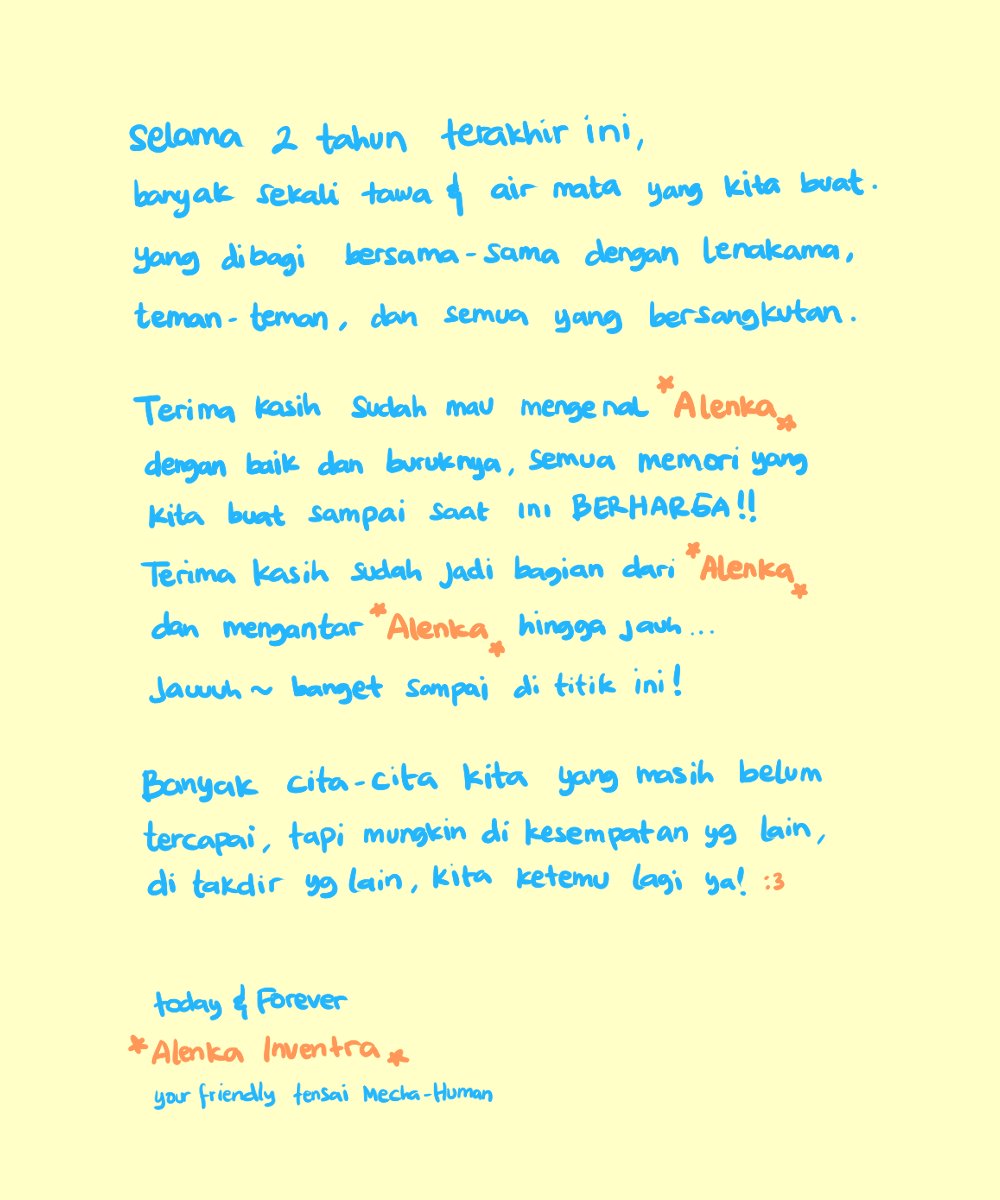 Selama 2 tahun terakhir ini,
banyak sekali tawa & air mata yang kita buat.
yang dibagi bersama-sama dengan Lenakama,
teman-teman, dan semua yang bersangkutan.
Terima kasih sudah mau mengenal *Alenka*
dengan baik dan buruknya, semua memori yang
kita buat sampai saat ini BERHARGA!!
Terima kasih sudah jadi bagian dari *Alenka*
dan mengantar *Alenka* hingga jauh...
Jauuuh~ banget sampai di titik ini!
Banyak cita-cita kita yang masih belum
tercapai, tapi mungkin di kesempatan yg lain,
di takdir yg lain, kita ketemu lagi ya! :3
today & Forever
*Alenka Inventra*
your friendly tensai Mecha-Human